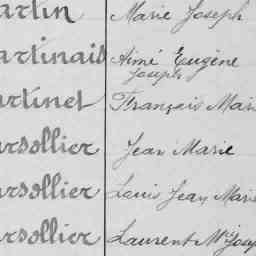 artin Marie Joseph
artinais Aimé Eugène
Joseph
artinet François Mari
rsollier Jean Marie
rsollier Louis Jean Marie
rsollier Laurent Mie Josep